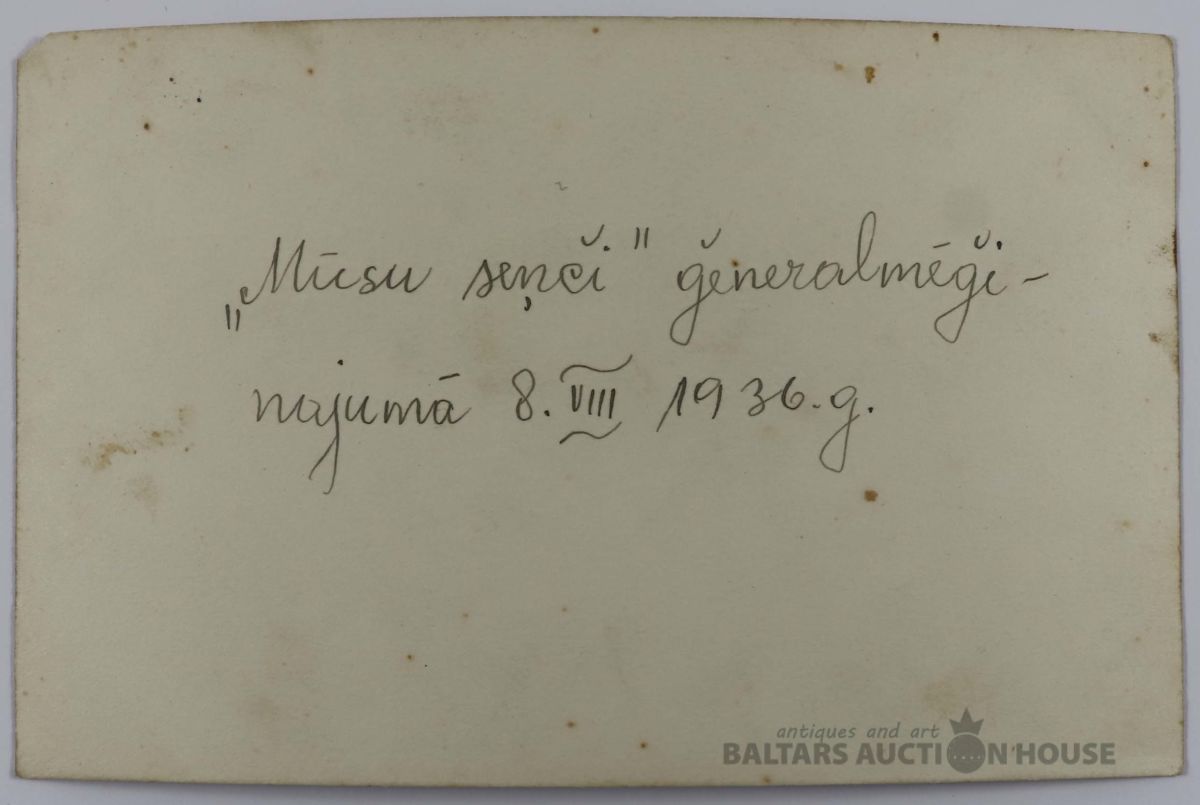 „Mūsu seņči" ģeneralmēģi-
najumā 8. VIII 1936. g.
antiques and art
BALTARS AUCTION HOUSE